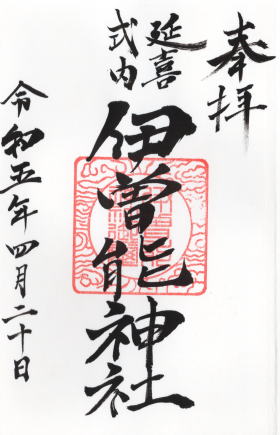 奉拝
延喜
式内
伊曽能神社
令和五年四月二十日